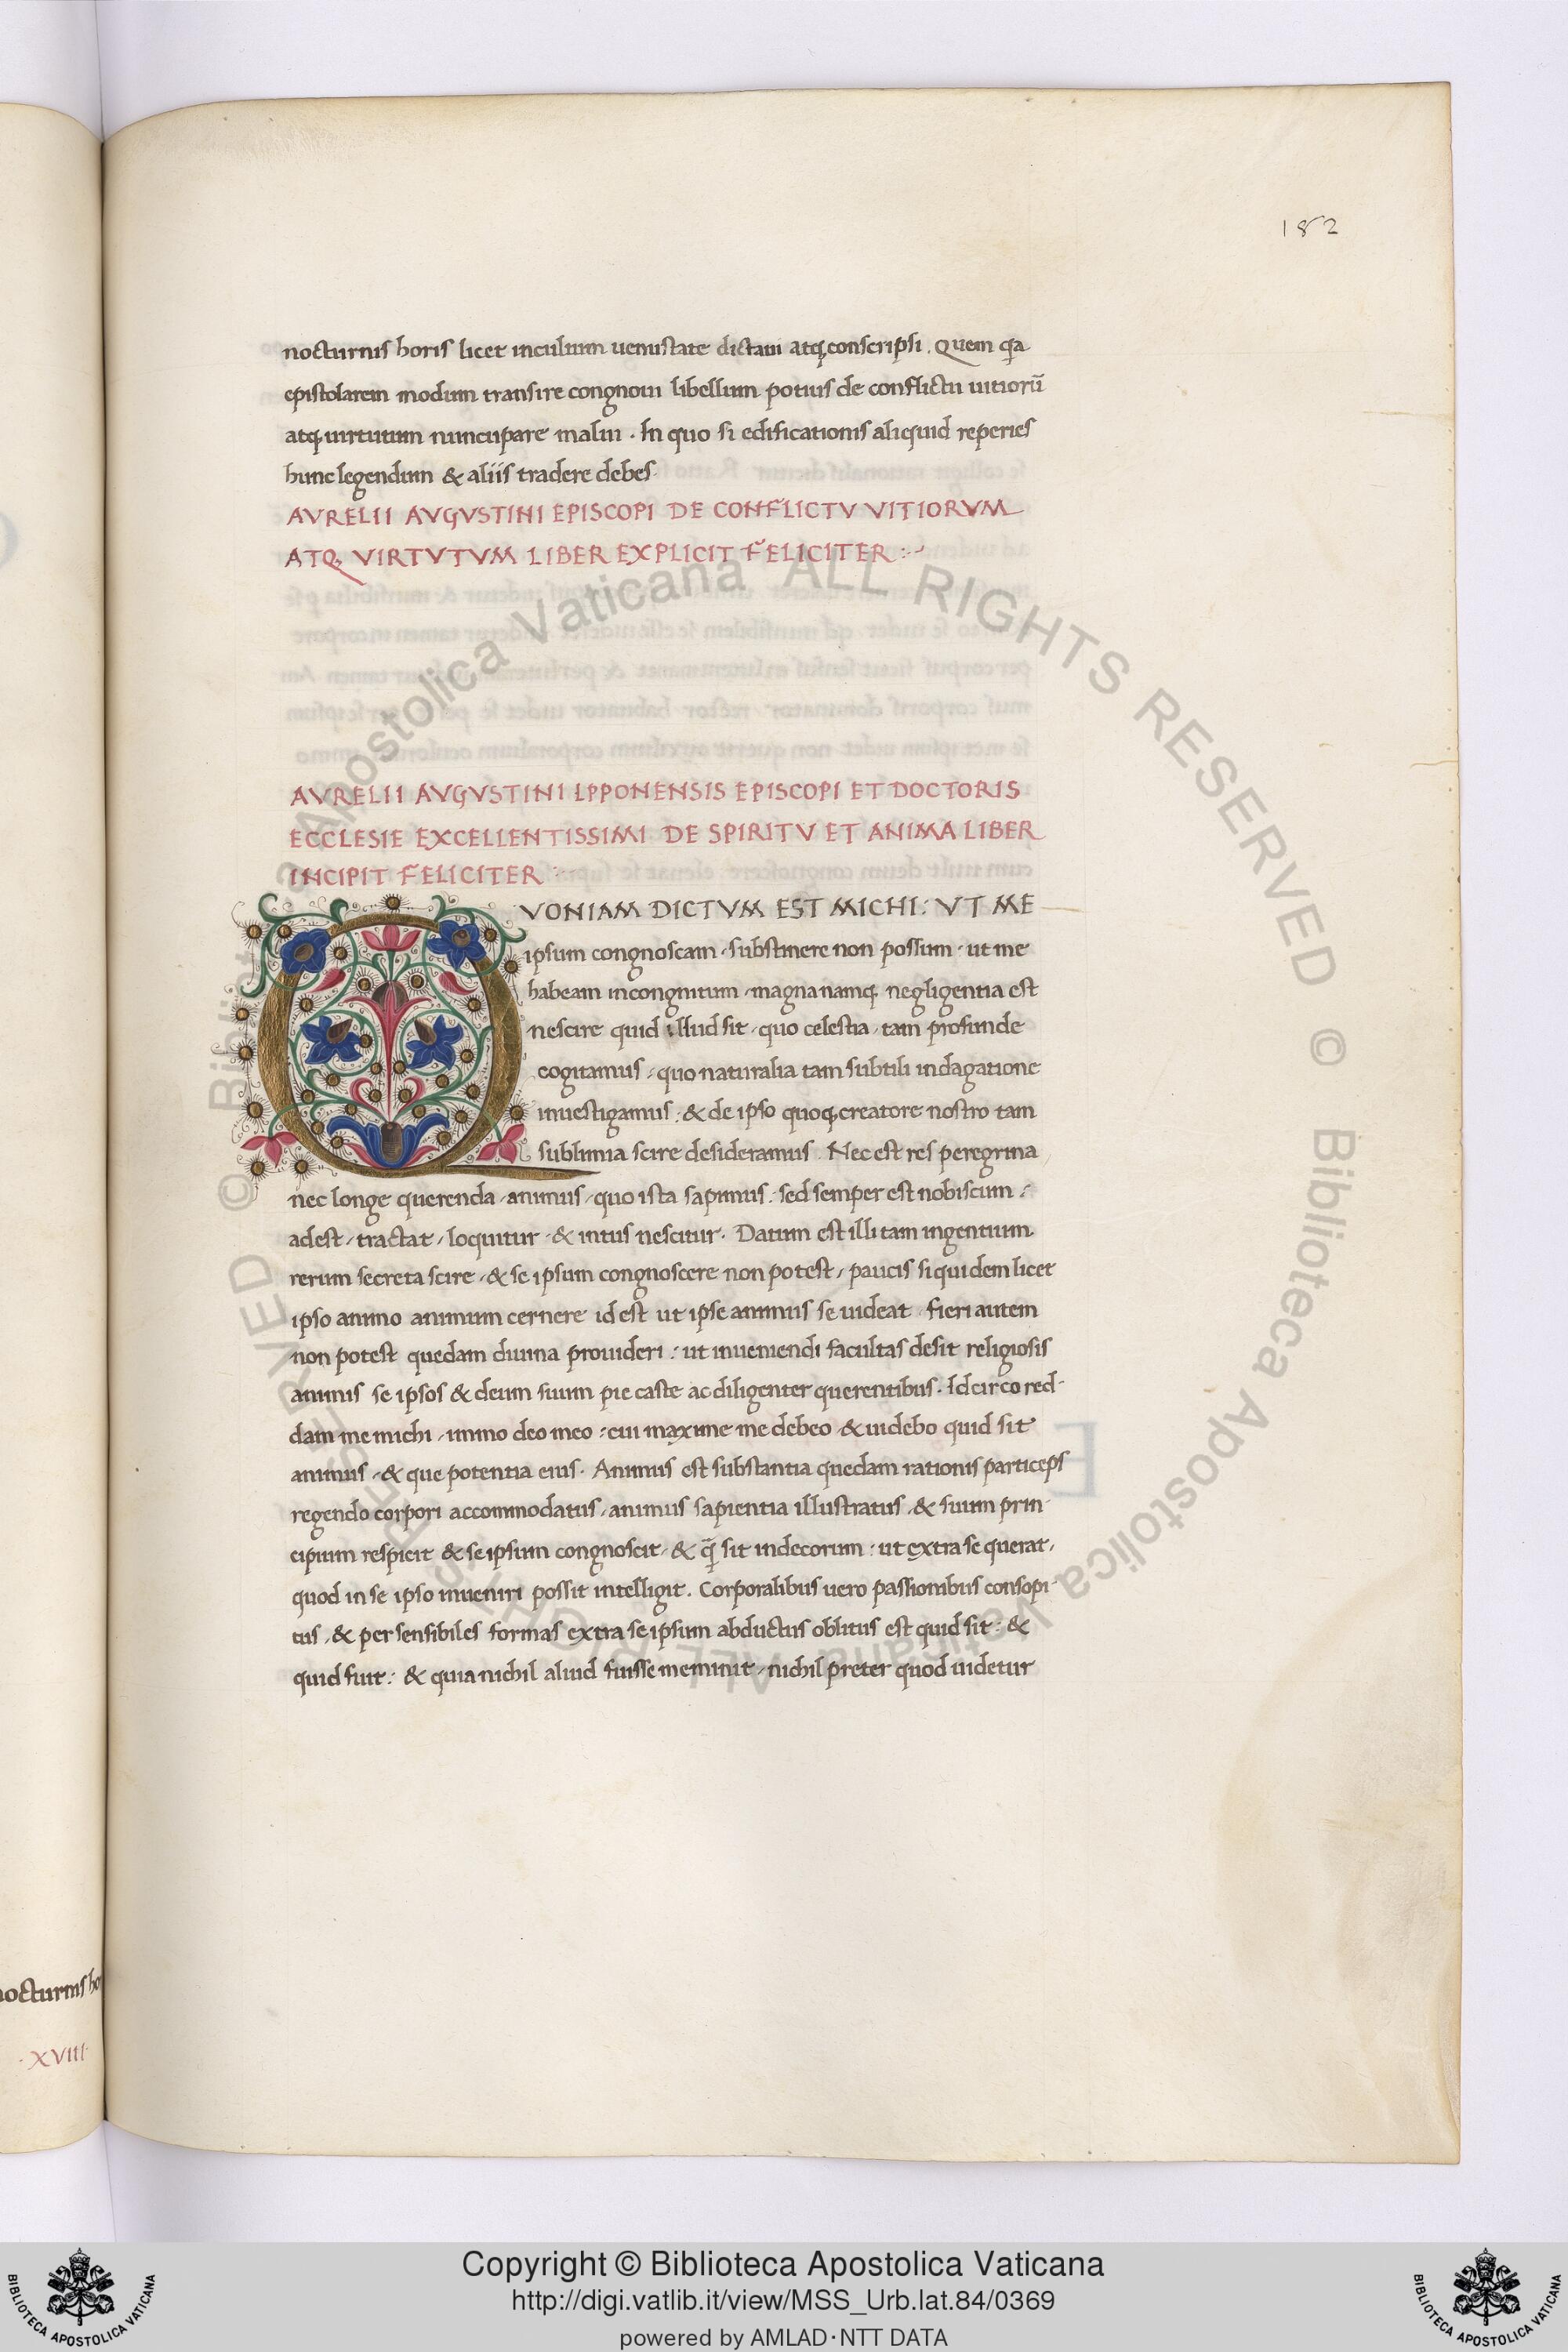 182
nocturnis horis licet incultum uenustate dictaui atq; conscripsi. Quem q̃a
epistolarem modum transire congnoui libellum potius de conflictu uitiorū
atq; uirtutum nuncupare malui. In quo si edificationis aliquid reperies
hunc legendum & aliis tradere debes
AVRELII AVGVSTINI EPISCOPI DE CONFLICTV VITIORVM
ATQ; VIRTVTVM LIBER EXPLICIT FELICITER :~
AVRELII AVGVSTINI IPPONENSIS EPISCOPI ET DOCTORIS
ECCLESIE EXCELLENTISSIMI DE SPIRITV ET ANIMA LIBER
INCIPIT FELICITER :~
QVONIAM DICTVM EST MICHI: VT ME
ipsum congnoscam, substinere non possum, ut me
habeam incongnitum, magna namq; negligentia est
nescire quid illud sit, quo celestia, tam profunde
cogitamus, quo naturalia tam subtili indagatione
inuestigamus: & de ipso quoq; creatore nostro tam
sublimia scire desideramus. Nec est res peregrina
nec longe querenda, animus, quo ista sapimus: sed semper est nobiscum:
adest, tractat, loquitur, & intus nescitur. Datum est illi tam ingentium
rerum secreta scire, & se ipsum congnoscere non potest, paucis siquidem licet
ipso animo animum cernere id est ut ipse animus se uideat, fieri autem
non potest quedam diuina prouideri: ut inueniendi facultas desit religiosis
animis se ipsos & deum suum pie caste ac diligenter querentibus. Idcirco red-
dam me michi, immo deo meo: cui maxime me debeo, & uidebo quid sit
animus, & que potentia eius. Animus est substantia quedam rationis particeps
regendo corpori accommodatus, animus sapientia illustratus, & suum prin-
cipium respicit & se ipsum congnoscit, & q̃ sit indecorum: ut extra se querat,
quod in se ipso inueniri possit intelligit. Corporalibus uero passionibus consopi-
tus, & per sensibiles formas extra se ipsum abductus oblitus est quid sit: &
quid fuit: & quia nichil aliud fuisse meminit, nichil preter quod uidetur
nocturnis ho
·XVIII·
© Biblioteca Apostolica Vaticana ALL RIGHTS RESERVED
© Biblioteca Apostolica Vaticana ALL RIGHTS RESERVED
Copyright © Biblioteca Apostolica Vaticana
http://digi.vatlib.it/view/MSS_Urb.lat.84/0369
powered by AMLAD·NTT DATA
BIBLIOTECA APOSTOLICA VATICANA
BIBLIOTECA APOSTOLICA VATICANA